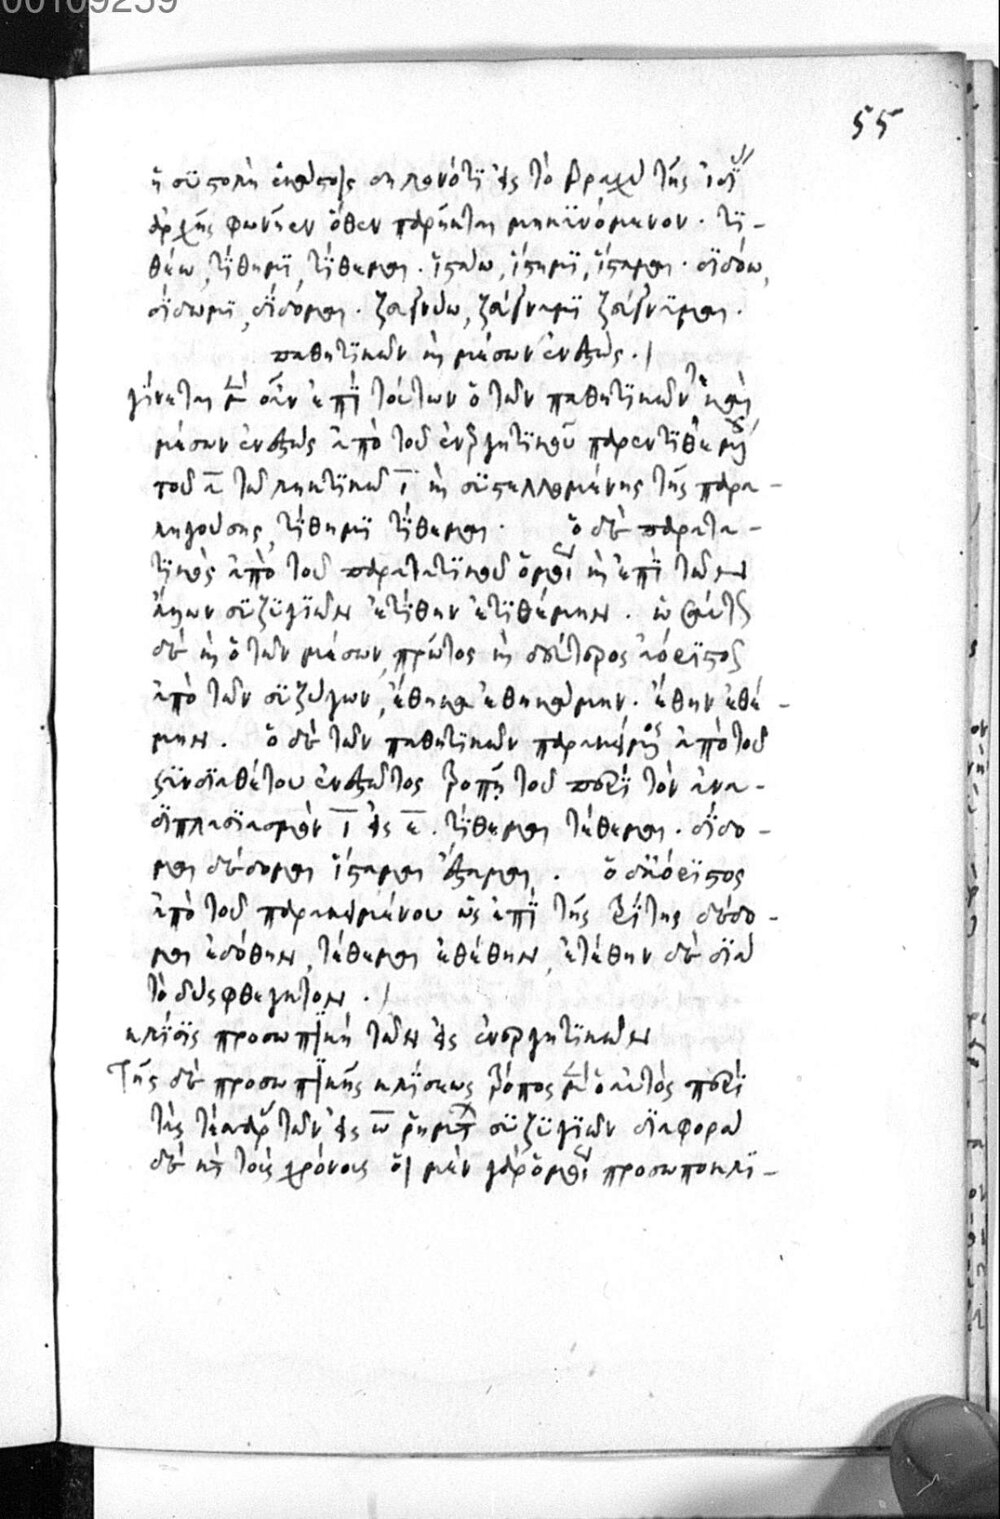 00109259
55
ἢ συστολὴ ἐκφύσεως δηλονότι εἰς τὸ βραχὺ τῆς
ἀρχῆς φωνῆεν ὅθεν παρῆκται μηκυνόμενον. τι-
θέω, τίθημι, τίθεμαι. ἱστάω, ἵστημι, ἵσταμαι. διδόω,
δίδωμι, δίδομαι. ζευγνύω, ζεύγνυμι ζεύγνυμαι.
παθητικῶν καὶ μέσων ἐνεστώς.
γίνεται μὲν οὖν ἐπὶ τούτων ὁ τῶν παθητικῶν τε καὶ
μέσων ἐνεστὼς ἀπὸ τοῦ ἐνεργητικοῦ παρεντιθεμένου
τοῦ α τῶ ληκτικῶ ι καὶ συστελλομένης τῆς παρα-
ληγούσης, τίθημι τίθεμαι. ὁ δὲ παρατα-
τικὸς ἀπὸ τοῦ παρατατικοῦ ὁμοίως καὶ ἐπὶ τῶν
ἄλλων συζυγιῶν ἐτίθην ἐτιθέμην. ὡσαύτως
δὲ καὶ ὁ τῶν μέσων, πρῶτος καὶ δεύτερος ἀόριστος
ἀπὸ τῶν συζύγων, ἔθηκα ἐθηκάμην. ἔθην ἐθέ-
μην. ὁ δὲ τῶν παθητικῶν παρακείμενος ἀπὸ τοῦ
συνδιαθέτου ἐνεστῶτος τροπῇ τοῦ περὶ τὸν ἀνα-
διπλασιασμὸν ι εἰς ε. τίθεμαι τέθεμαι. δίδο-
μαι δέδομαι ἵσταμαι ἕσταμαι. ὁ δ' ἀόριστος
ἀπὸ τοῦ παρακειμένου ὡς ἐπὶ τῆς τρίτης δέδο-
μαι ἐδόθην, τέθεμαι ἐθέθην, ἐτέθην δὲ διὰ
τὸ δυσφθεγητον.
κλίσις προσωπικὴ τῶν εἰς ἐνεργητικῶν
Τῆς δὲ προσωπικῆς κλίσεως τρόπος μὲν ὁ αὐτὸς περὶ
τὰς τέσσαρας τῶν εἰς ω ῥημάτων συζυγιῶν διαφορὰ
δὲ κατὰ τοὺς χρόνους οἱ μὲν γὰρ ὅμοιοι προσωποκλι-